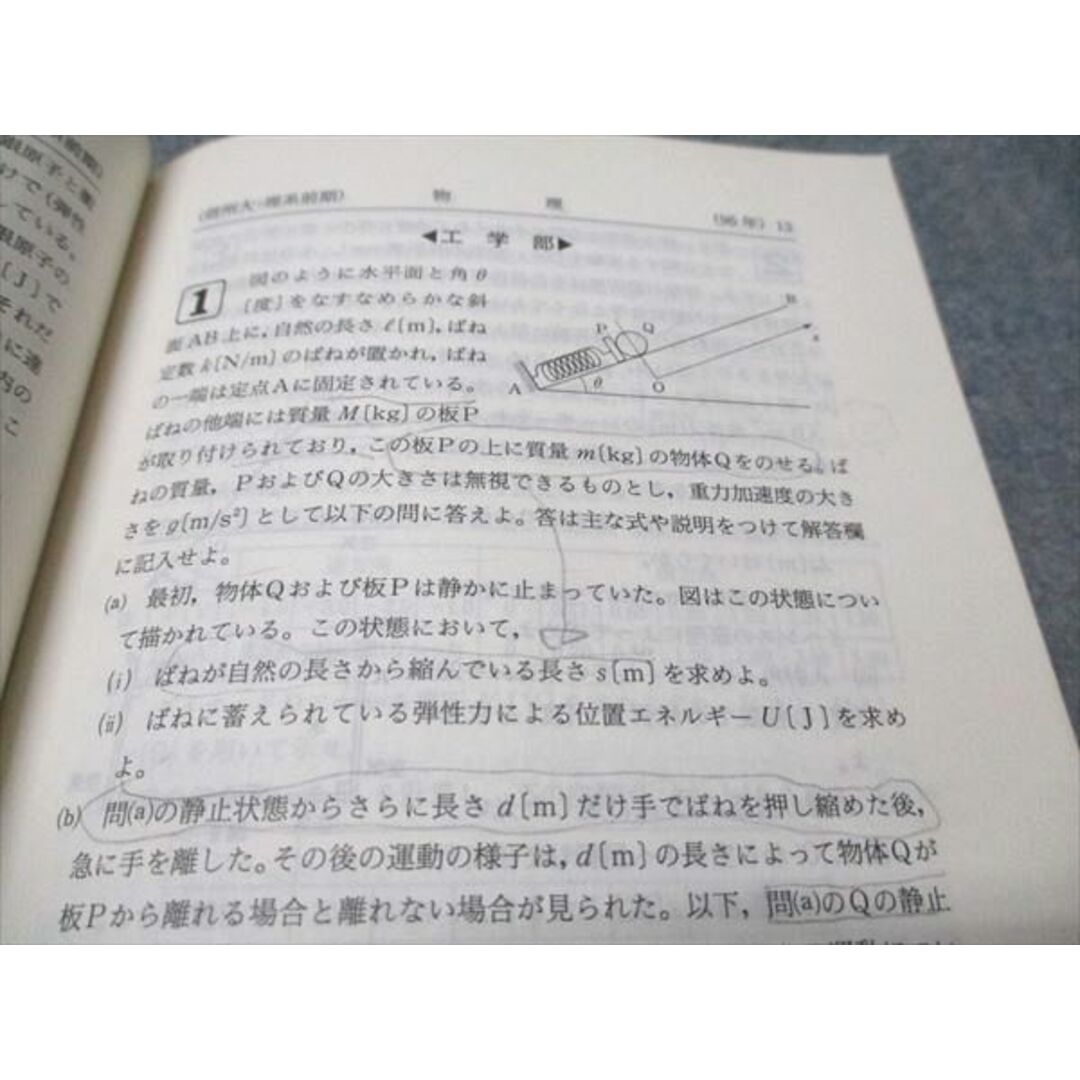 限原子と衝
けで(弾性
している。
限原子の
〔J〕で
それだ
に達
内の
こ
(信州大-理系前期) 物 理 (96年) 13
◀工 学 部▶
1 図のように水平面と角θ
〔度〕をなすなめらかな斜
面AB上に,自然の長さℓ〔m〕,ばね
定数k〔N/m〕のばねが置かれ,ばね
の一端は定点Aに固定されている。
ばねの他端には質量M〔kg〕の板P
が取り付けられており,この板Pの上に質量m〔kg〕の物体Qをのせる。ば
ねの質量,PおよびQの大きさは無視できるものとし,重力加速度の大き
さをg〔m/s²〕として以下の問に答えよ。答は主な式や説明をつけて解答欄
に記入せよ。
(a) 最初,物体Qおよび板Pは静かに止まっていた。図はこの状態につい
て描かれている。この状態において,
(i) ばねが自然の長さから縮んでいる長さs〔m〕を求めよ。
(ii) ばねに蓄えられている弾性力による位置エネルギーU〔J〕を求め
よ。
(b) 問(a)の静止状態からさらに長さd〔m〕だけ手でばねを押し縮めた後,
急に手を離した。その後の運動の様子は,d〔m〕の長さによって物体Qが
板Pから離れる場合と離れない場合が見られた。以下,問(a)のQの静止
A
P
Q
B
x
O
θ